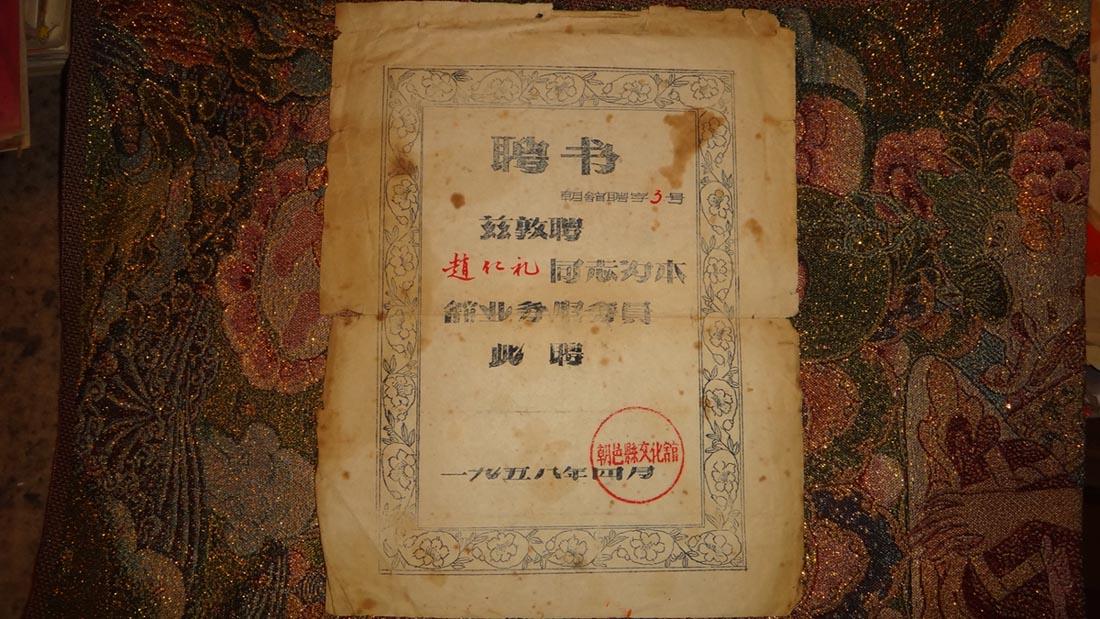 聘书
朝館聘字3号
兹敦聘
趙仁礼同志为本
館业务服务員
此聘
朝邑縣文化館
一九五八年四月